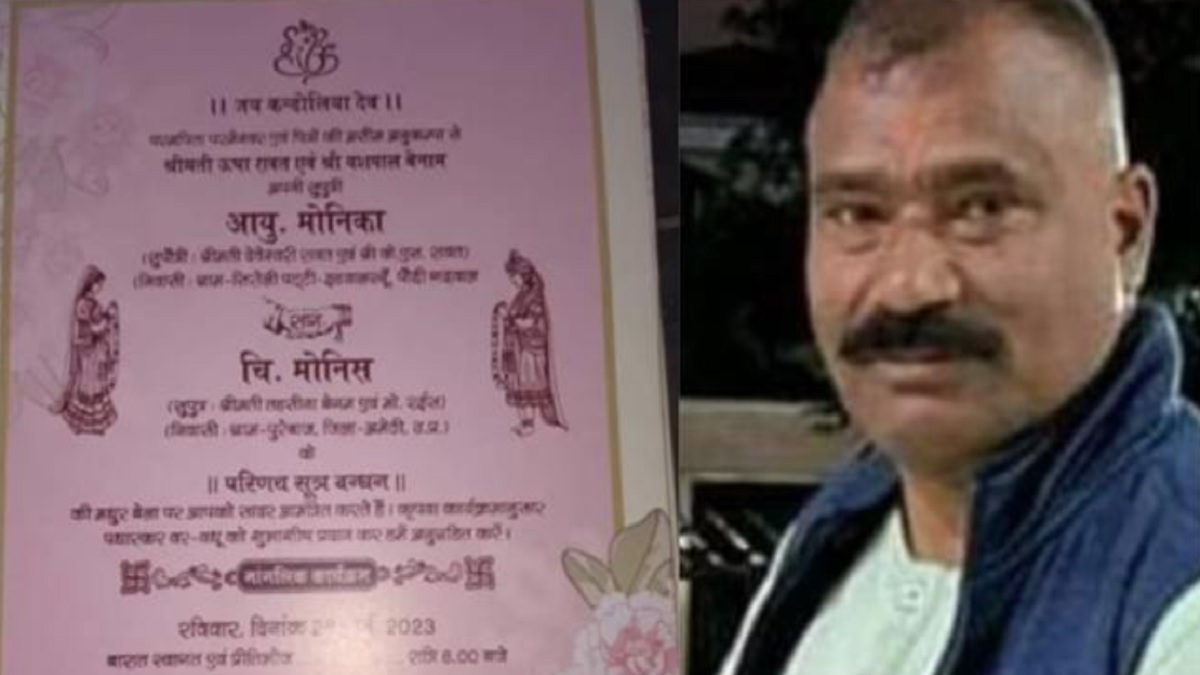 ।। जय कन्डोलिया देव ।।
परमपिता परमेश्वर एवं पित्रों की असीम अनुकम्पा से
श्रीमती ऊषा रावत एवं श्री यशपाल बेनाम
अपनी सुपुत्री
आयु. मोनिका
(सुपौत्री : श्रीमती एवं श्री रावत)
(निवासी : ग्राम- पौड़ी गढ़वाल
संग
चि. मोनिस
(सुपुत्र : श्रीमती बेगम एवं मो. रईस)
(निवासी : ग्राम-पुरेबाज, जिला-अमेठी, उ.प्र.)
के
॥ परिणय सूत्र बन्धन ॥
की मधुर बेला पर आपको सादर आमंत्रित करते हैं। कृपया कार्यक्रमानुसार
पधारकर वर-वधू को शुभाशीष प्रदान कर हमें अनुग्रहित करें।
मांगलिक कार्यक्रम
रविवार, दिनांक 2023
बारात स्वागत एवं प्रीतिभोज रात्रि 8.00 बजे